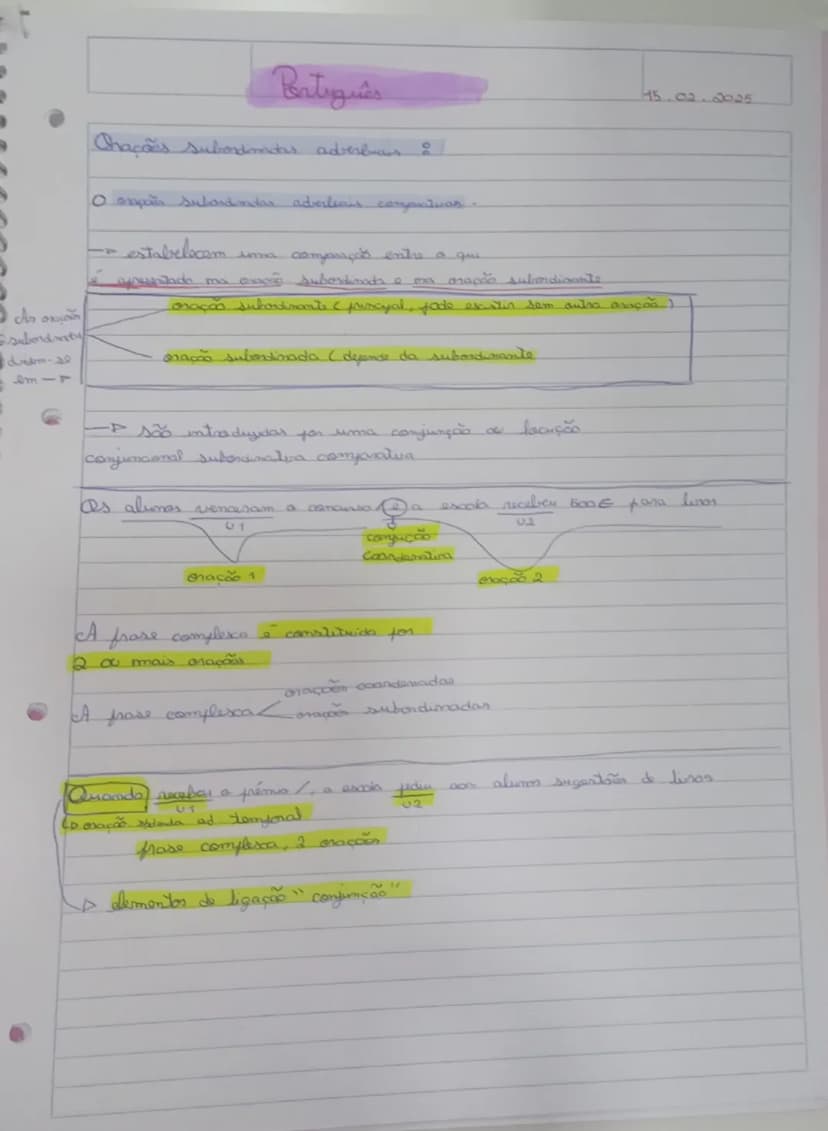 Português
15.02.2025
Orações subordinadas adverbiais :
O orações subordindas adverbiais comparativas.
→ estabelecem uma comparação entre o que
é apresentado na oração subordinada e na oração subordinante
oração subordinante (principal, pode existir sem outra oração)
As orações
subordinadas
dividem-se
em →
oração subordinada (depende da subordinante
→ são introduzidas por uma conjunção ou locução
conjuncional subordinativa comparativa
Os alunos venceram o concurso e a escola recebeu 500€ para livros
V1
V2
conjução
coordenativa
oração 1
oração 2
A frase complexa é constituida por
2 ou mais orações
orações coordenadas
A frase complexa < oração subordinadas
Quando recebeu o prémio /, a escola pediu aos alunos sugestões de livros
V1
V2
↳ oração ad temporal
frase complexa, 2 orações
→ elementos de ligação "conjunção"